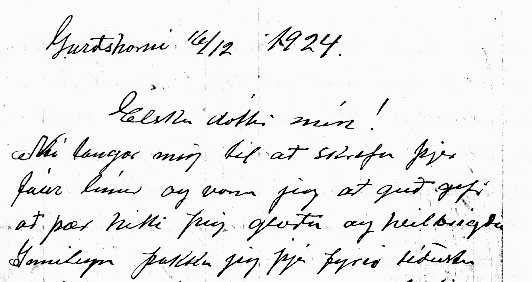 Gurðshorni 16/12 1924.
Elsku dóttir mín!
Nú langar mig til at skrifa þjer
fáar línur og vona jeg at guð gefi
at þær hitti þig glaða og heilbrigða
þakka jeg þjer fyrir síðasta